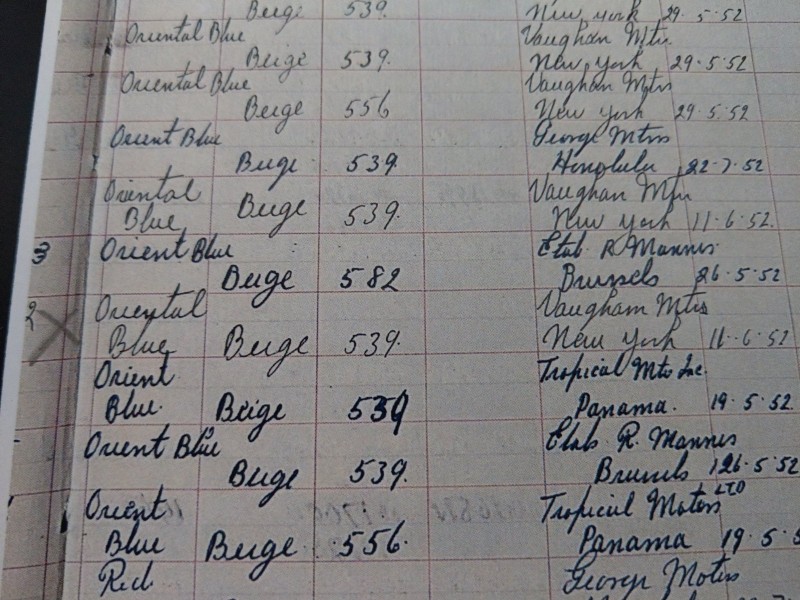 Beige 539. New York 29.5.52
Oriental Blue Vaughan Mtrs
Beige 539. New York 29.5.52
Oriental Blue Vaughan Mtrs
Beige 556 New York 29.5.52
Orient Blue George Mtrs
Beige 539 Honolulu 22.7.52
Oriental Vaughan Mtrs
Blue Beige 539. New York 11.6.52.
3 Orient Blue Etab. R. Mannes
Beige 582 Brussels 26.5.52
2 Oriental Vaughan Mtrs
X Blue Beige 539. New York 11.6.52
Orient Tropical Mtrs Inc.
Blue. Beige 539 Panama. 19.5.52.
Orient Blue Etab. R. Mannes
Beige 539. Brussels 26.5.52
Orient Tropical Motors LTD
Blue Beige 556. Panama 19.5.5
Red George Motors